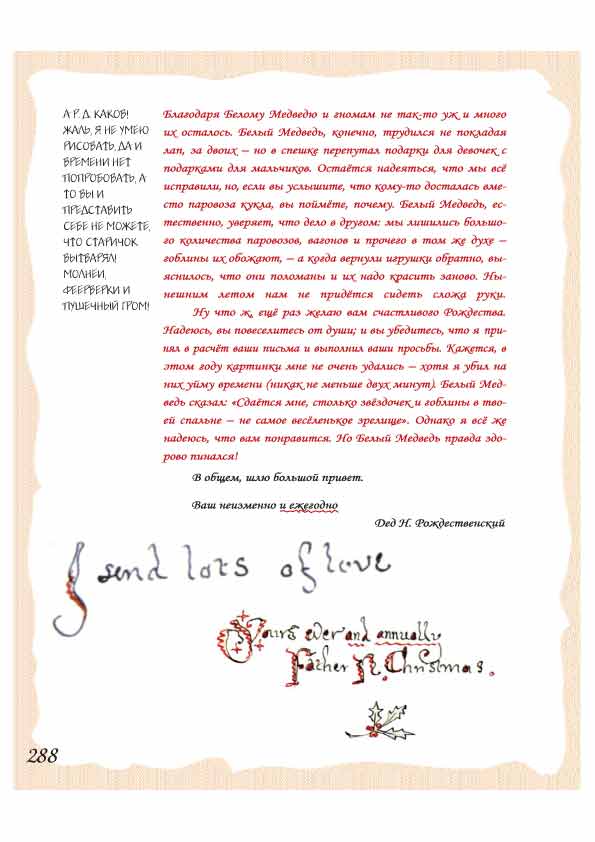 А Р. Д. КАКОВ!
ЖАЛЬ, Я НЕ УМЕЮ
РИСОВАТЬ, ДА И
ВРЕМЕНИ НЕТ
ПОПРОБОВАТЬ, А
ТО ВЫ И
ПРЕДСТАВИТЬ
СЕБЕ НЕ МОЖЕТЕ,
ЧТО СТАРИЧОК
ВЫТВАРЯЛ!
МОЛНЕИ,
ФЕЕРВЕРКИ И
ПУШЕЧНЫЙ ГРОМ!
Благодаря Белому Медведю и гномам не так-то уж и много
их осталось. Белый Медведь, конечно, трудился не покладая
лап, за двоих – но в спешке перепутал подарки для девочек с
подарками для мальчиков. Остаётся надеяться, что мы всё
исправили, но, если вы услышите, что кому-то досталась вме-
сто паровоза кукла, вы поймёте, почему. Белый Медведь, ес-
тественно, уверяет, что дело в другом: мы лишились большо-
го количества паровозов, вагонов и прочего в том же духе –
гоблины их обожают, – а когда вернули игрушки обратно, вы-
яснилось, что они поломаны и их надо красить заново. Ны-
нешним летом нам не придётся сидеть сложа руки.
Ну что ж, ещё раз желаю вам счастливого Рождества.
Надеюсь, вы повеселитесь от души; и вы убедитесь, что я при-
нял в расчёт ваши письма и выполнил ваши просьбы. Кажется, в
этом году картинки мне не очень удались – хотя я убил на
них уйму времени (никак не меньше двух минут). Белый Мед-
ведь сказал: «Сдаётся мне, столько звёздочек и гоблины в тво-
ей спальне – не самое весёленькое зрелище». Однако я всё же
надеюсь, что вам понравится. Но Белый Медведь правда здо-
рово пинался!
В общем, шлю большой привет.
Ваш неизменно и ежегодно
Дед Н. Рождественский
I send lots of love
Yours ever and annually
Father N. Christmas.
288